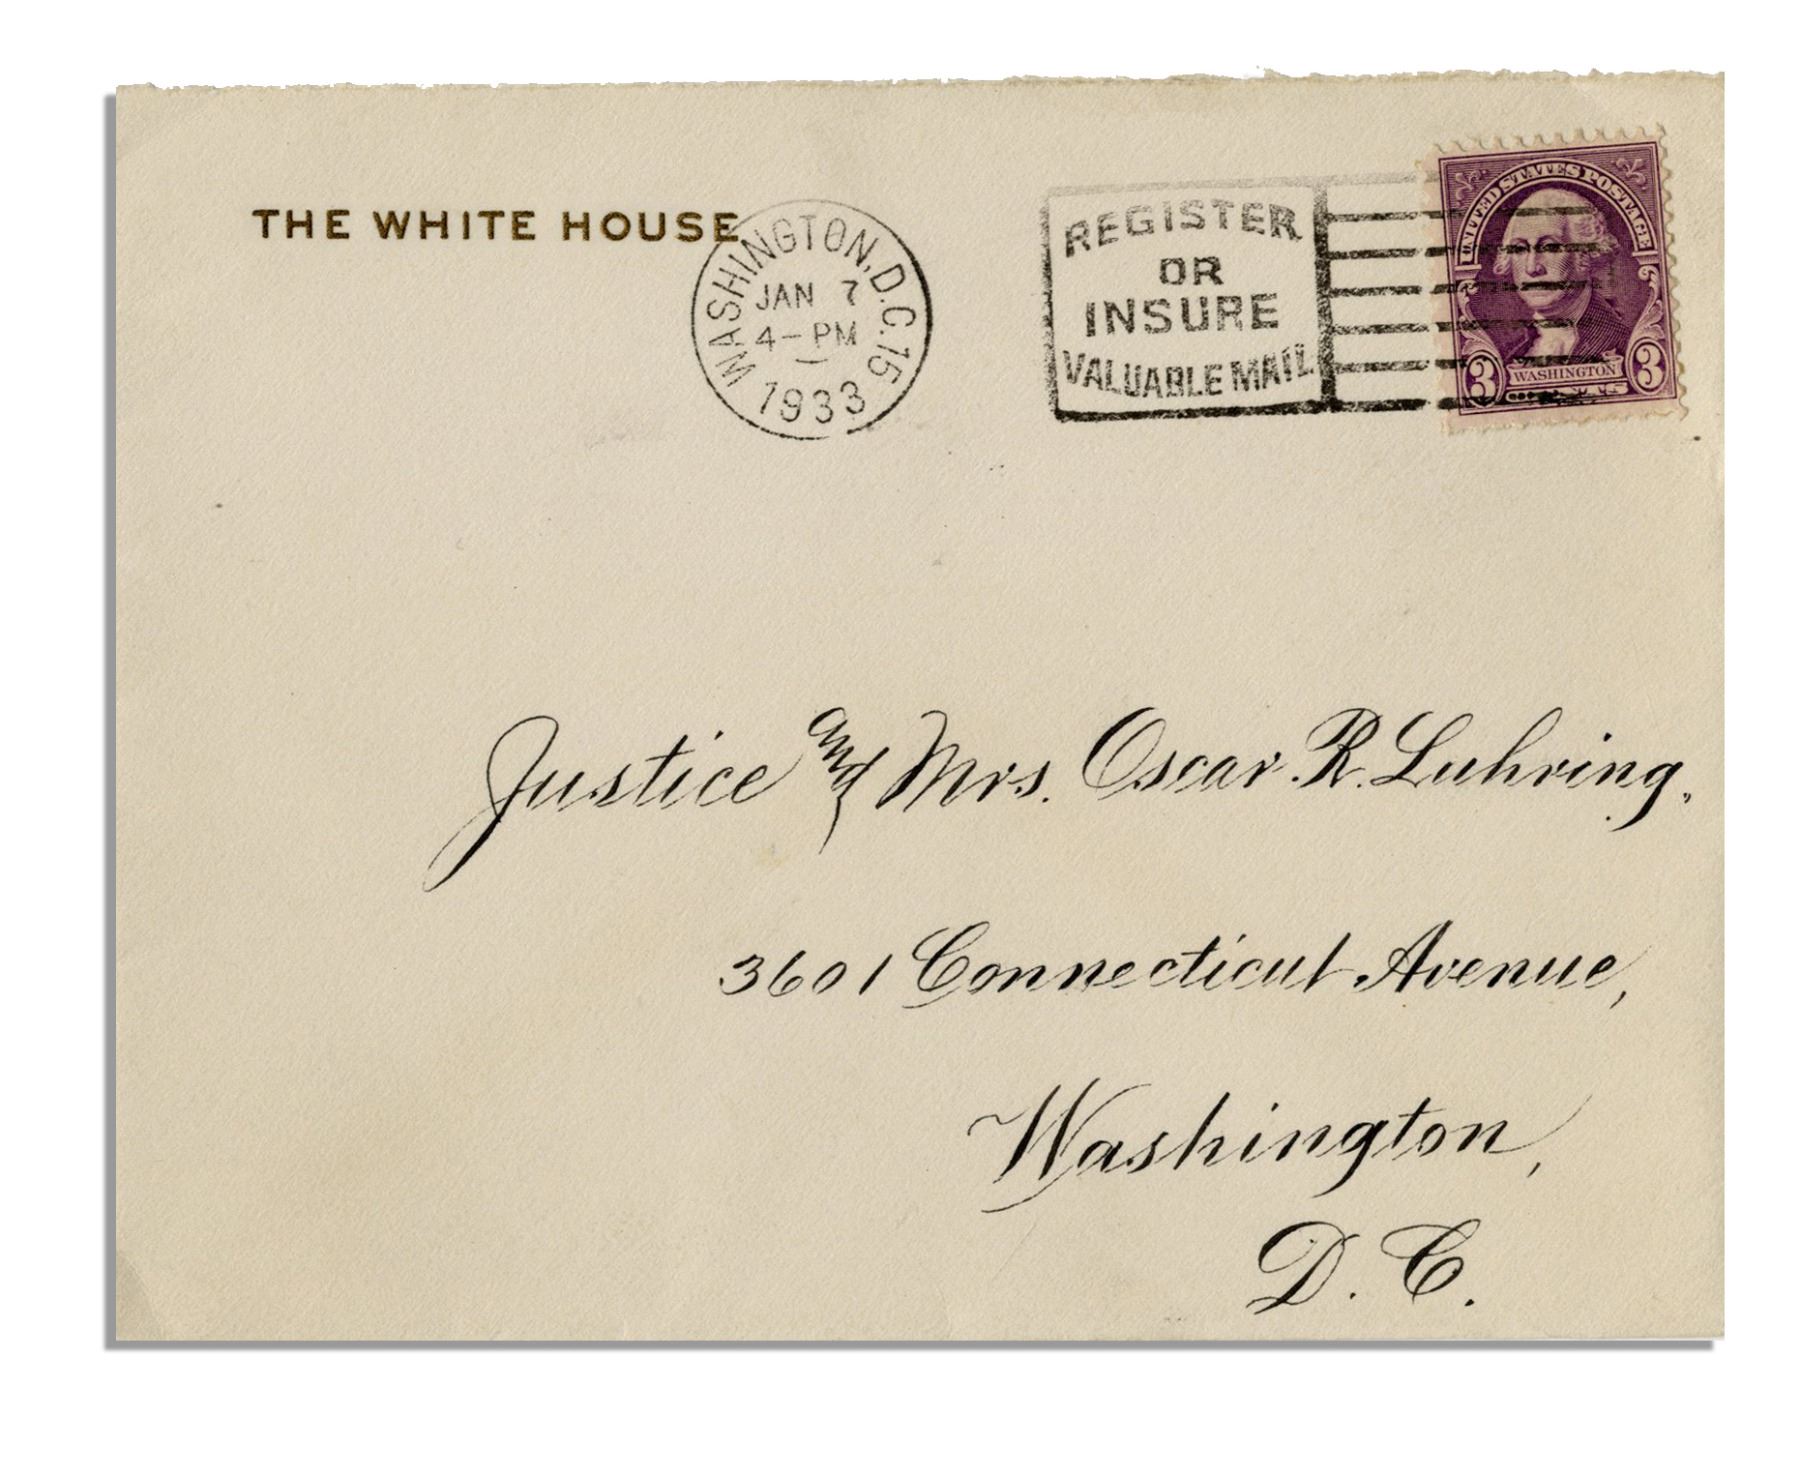 THE WHITE HOUSE
WASHINGTON, D.C. 15
JAN 7
4-PM
1933
REGISTER
OR
INSURE
VALUABLE MAIL
UNITED STATES POSTAGE
3 WASHINGTON 3
CENTS
Justice and Mrs. Oscar R. Luhring,
3601 Connecticut Avenue,
Washington,
D. C.